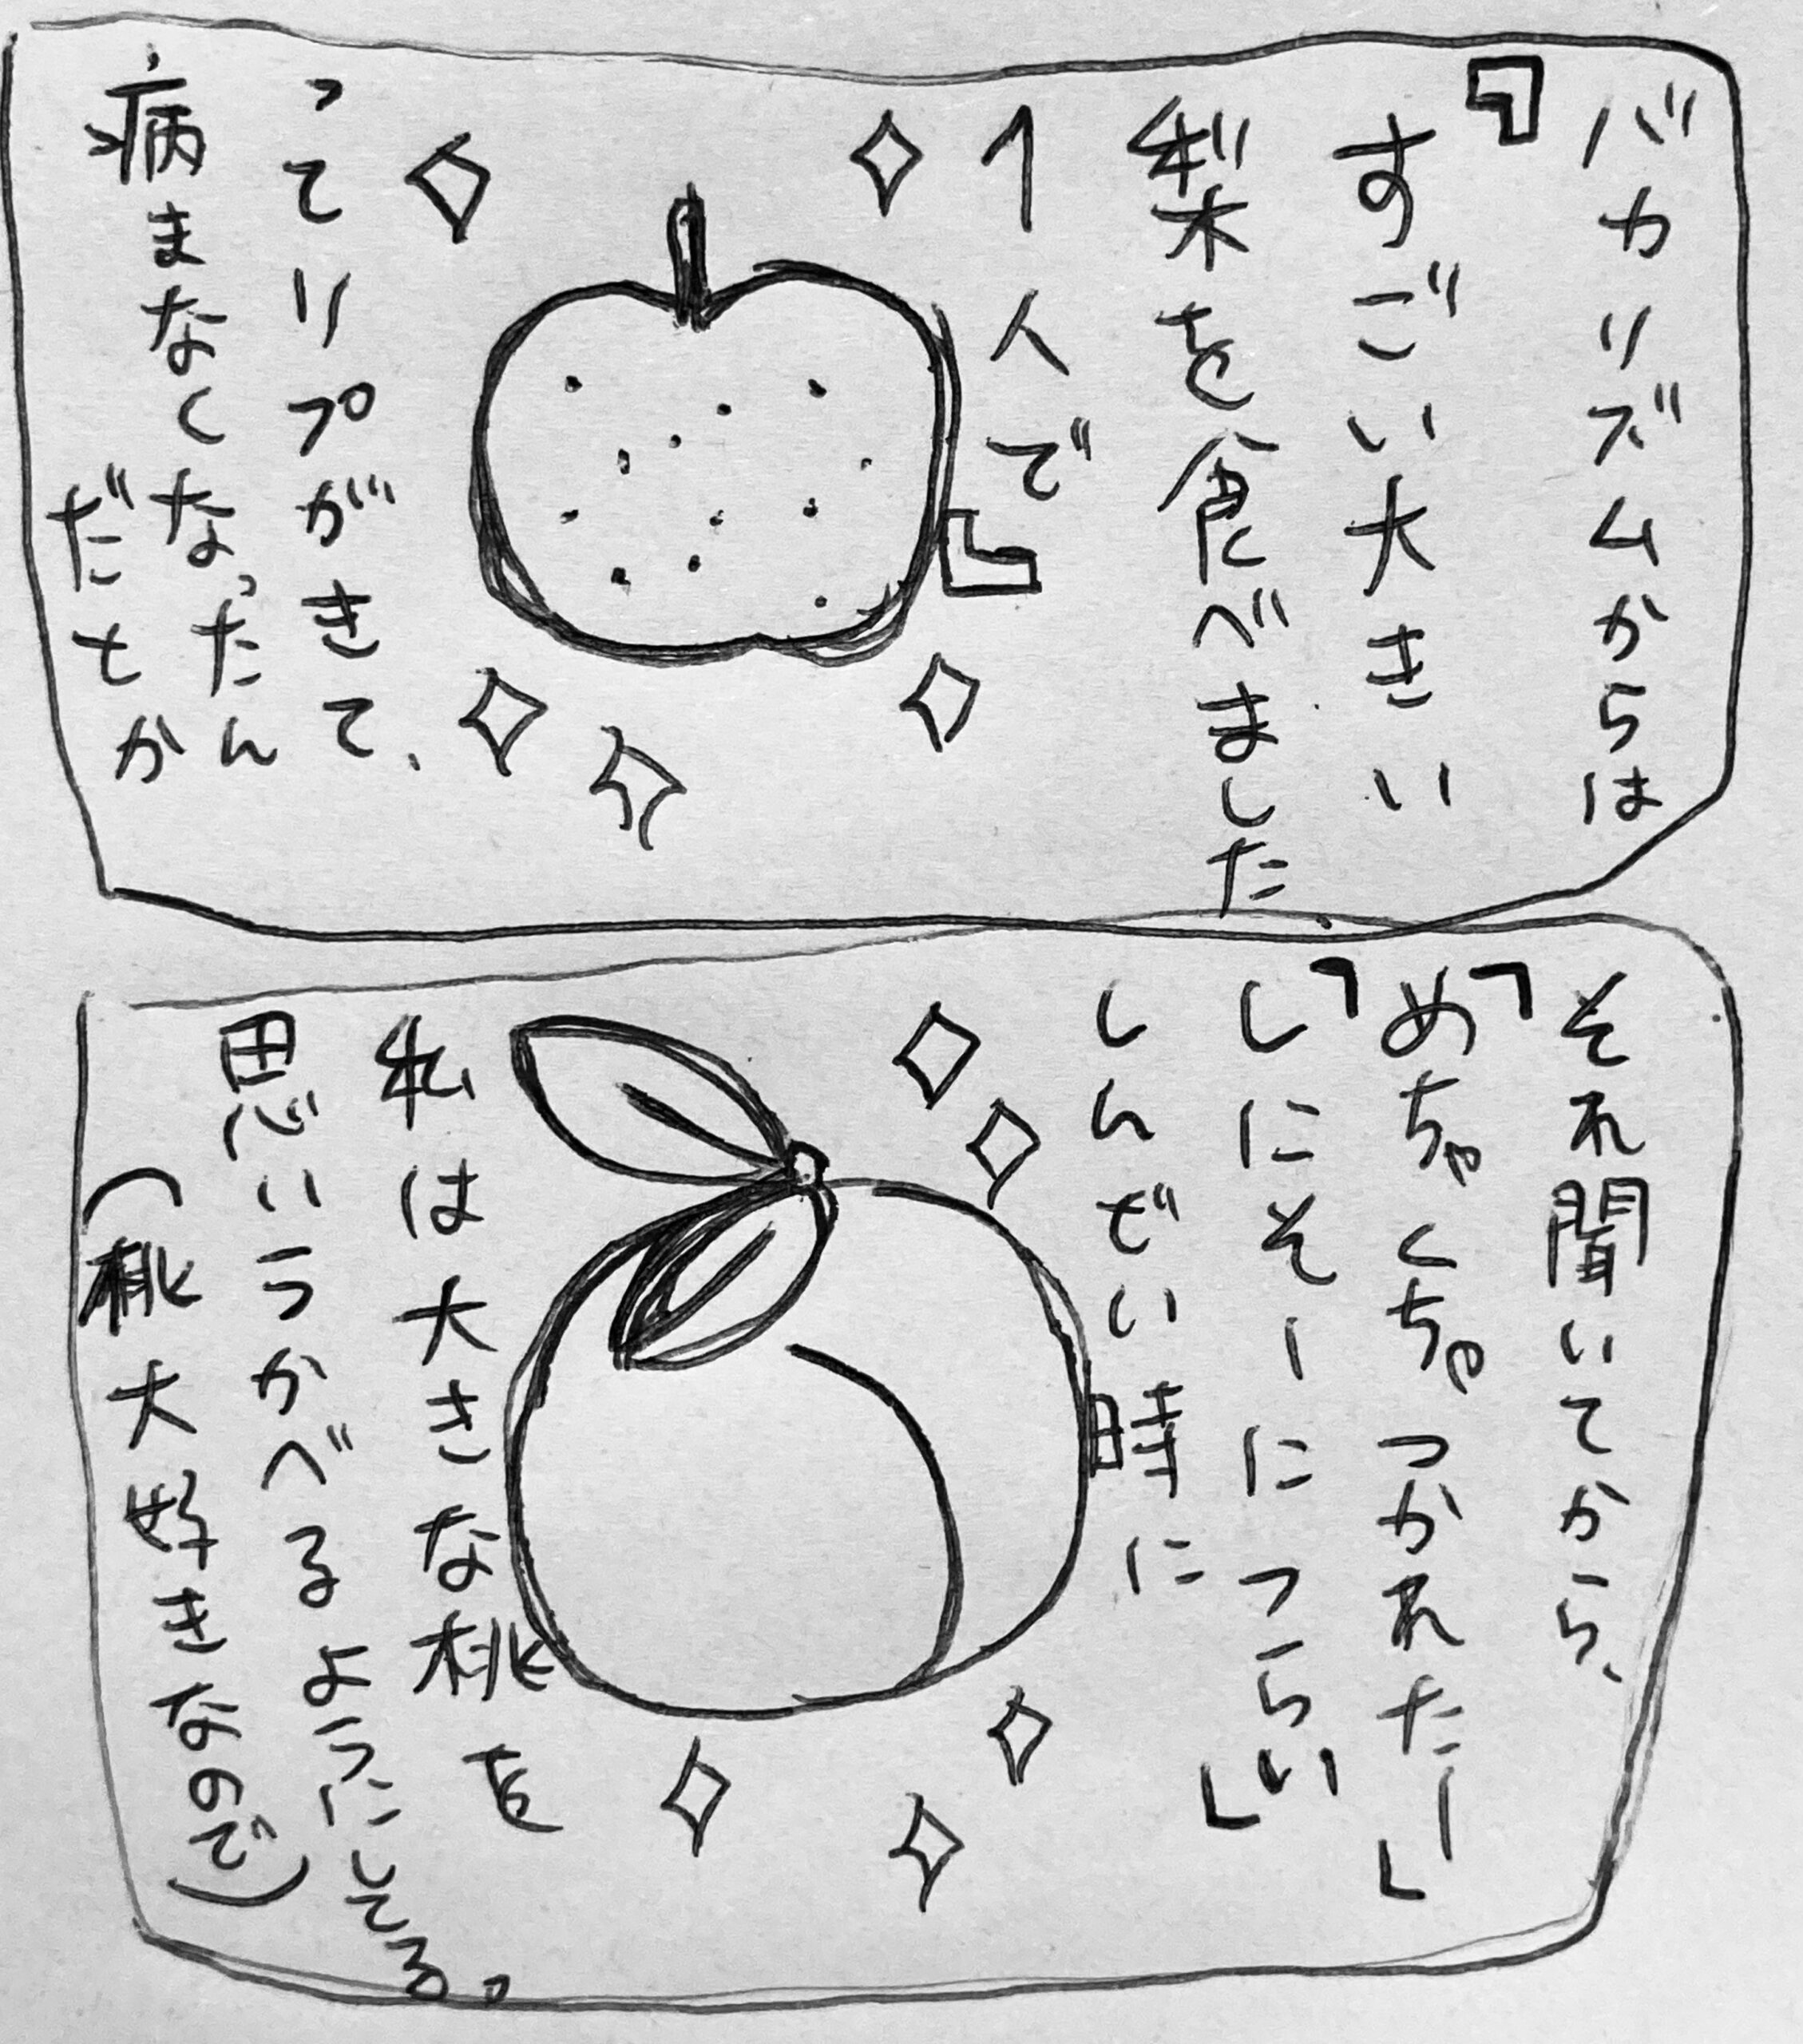 バカリズムからは
『すごい大きい
梨を食べました.
1人で』
ってリプがきて、
病まなくなったん
だとか
それ聞いてから、
「めちゃくちゃつかれたー」
「しにそーにつらい」
しんどい時に
私は大きな桃を
思いうかべるようにしてる。
(桃大好きなので)